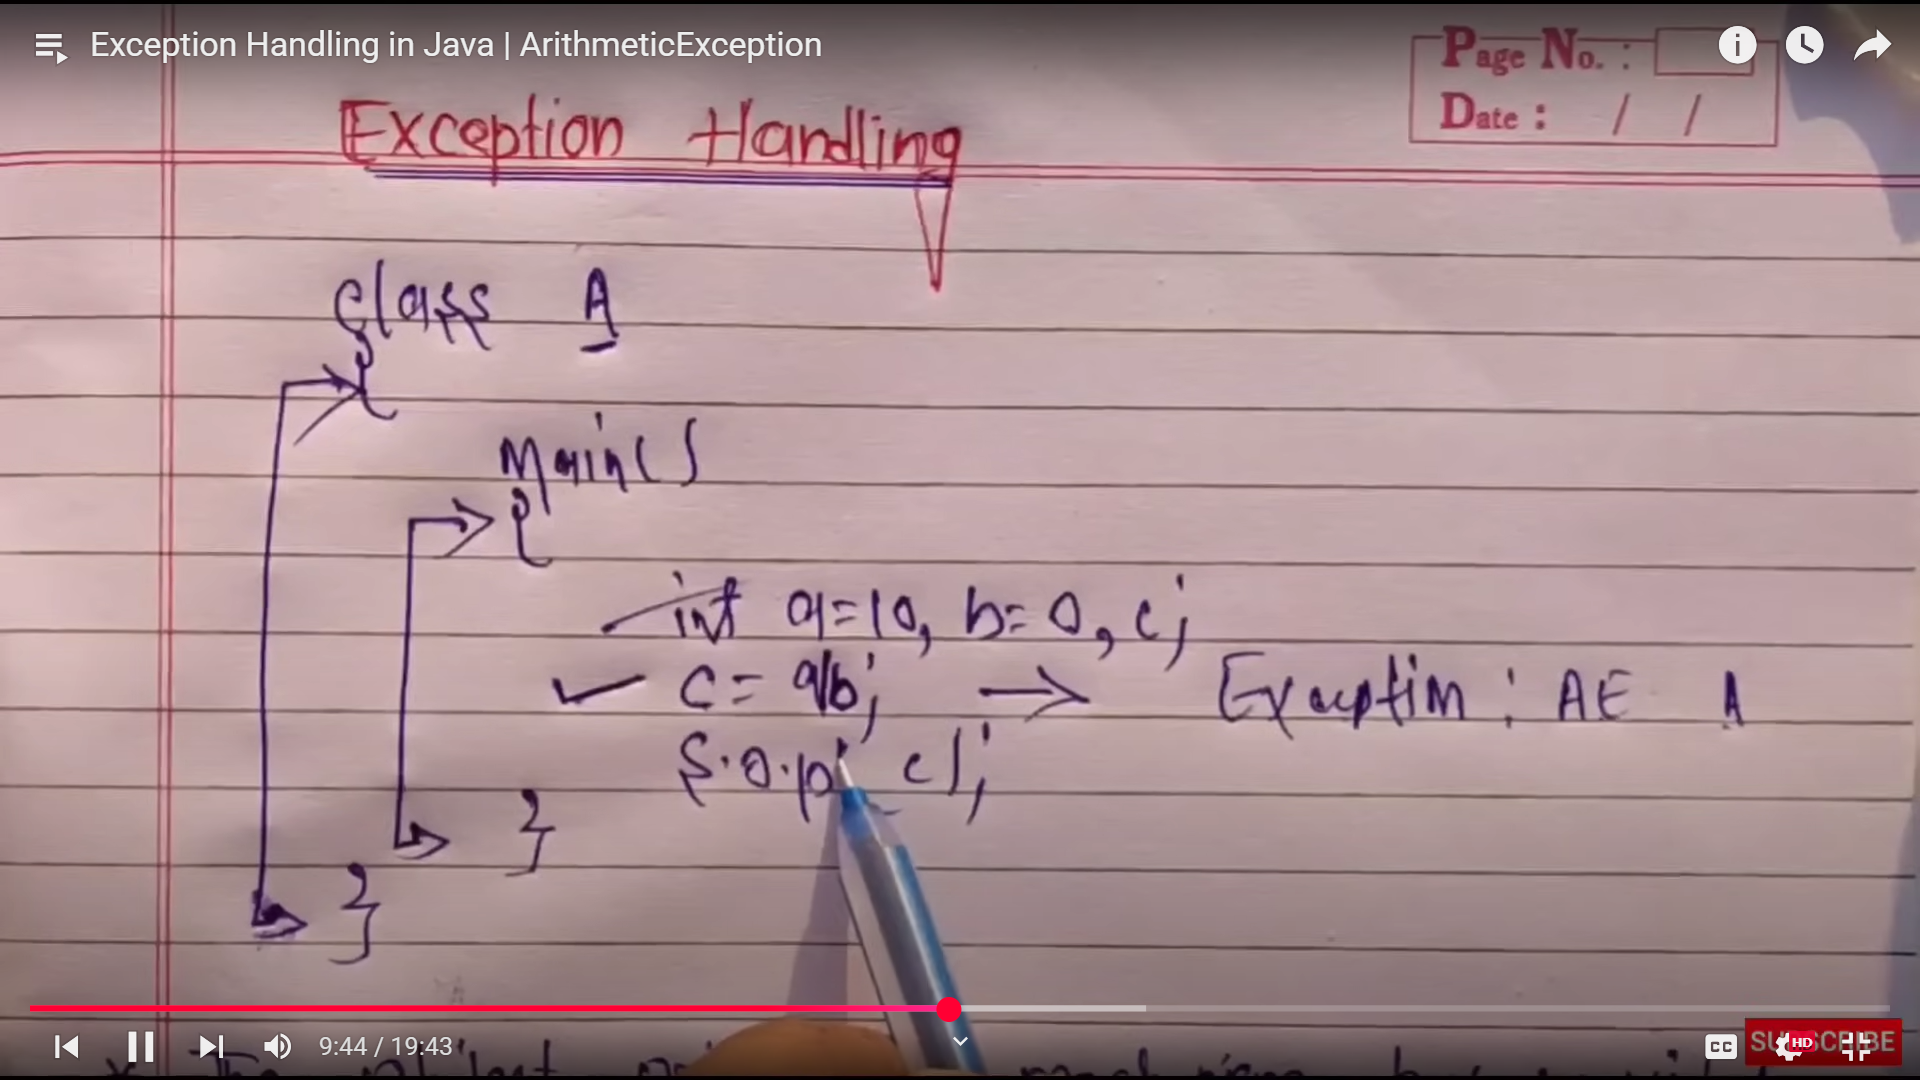 Exception Handling in Java | ArithmeticException
Page No. :
Date : / /
Exception Handling
class A
{
Main()
{
int a=10, b=0, c;
c = a/b; → Exception : AE
S.o.p( c);
}
}
9:44 / 19:43
CC
HD
SUBSCRIBE